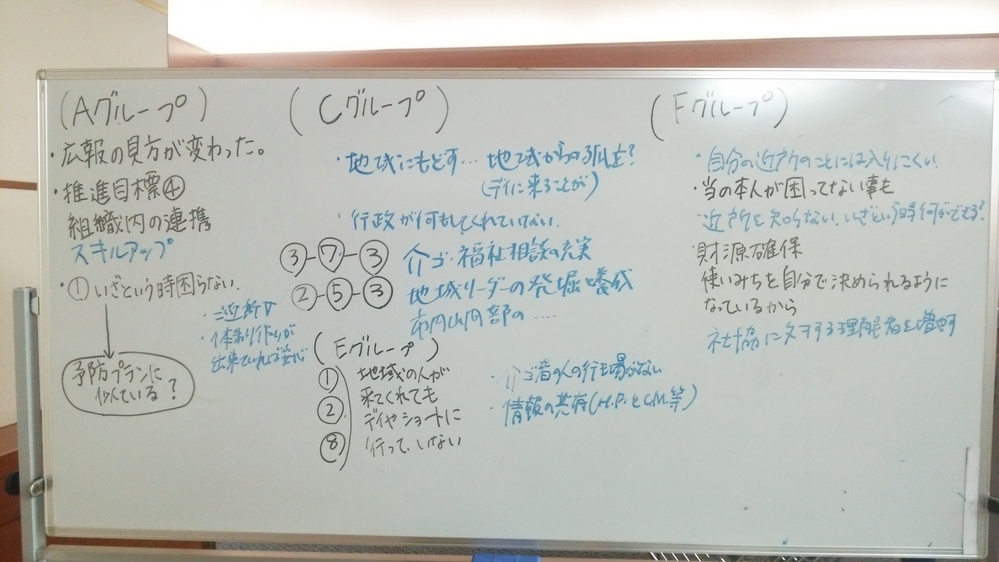 (Aグループ)
・広報の見方が変わった。
・推進目標④
組織内の連携
スキルアップ
・①いざという時困らない。
・ご近所
・体制り作りが
出来ていれば安心
予防プランに
似ている?
(Cグループ)
・地域にもどす… 地域からの孤立?
(デイに来ることが)
・行政が何もしてくれていない.
③-⑦-③ 介ゴ・福祉相談の充実
②-⑤-③ 地域リーダーの発掘・養成
市内山間部の….
(Eグループ)
① 地域の人が
② 来てくれても
デイやショートに
⑧ 行って、いない
・介ゴ者の人の行き場がない
・情報の共有(H.P.とC.M.等)
(Fグループ)
・自分の近所のことには入りにくい.
・当の本人が困ってない事も
近所を知らない.いざという時何ができる?
・財源確保
使いみちを自分で決められるように
なっているから
社協に対する理解者を増やす